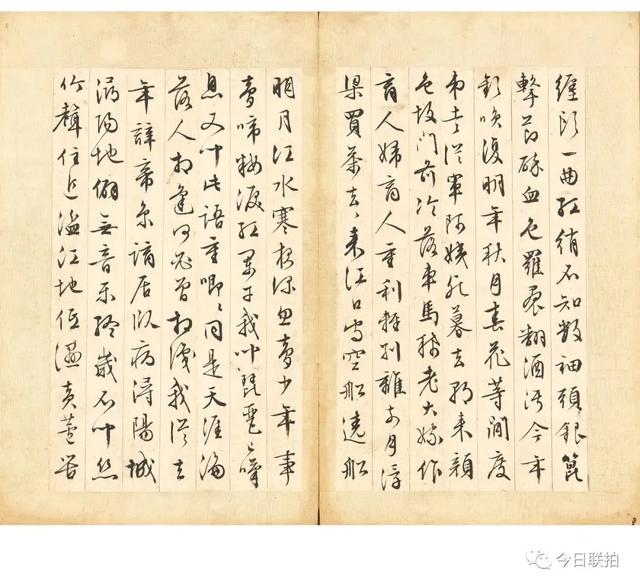 纏頭一曲紅綃不知數鈿頭銀篦
擊節碎血色羅裙翻酒污今年
歡笑復明年秋月春花等閒度
弟走從軍阿姨死暮去朝來顏
色故門前冷落車馬稀老大嫁作
商人婦商人重利輕別離前月浮
梁買茶去去來江口守空船遶船
明月江水寒夜深忽夢少年事
夢啼粧淚紅闌干我聞琵琶已嘆
息又聞此語重唧唧同是天涯淪
落人相逢何必曾相識我從去
年辭帝京謫居臥病潯陽城
潯陽地僻無音樂終歲不聞絲
竹聲住近湓江地低濕黃蘆苦
今日联拍